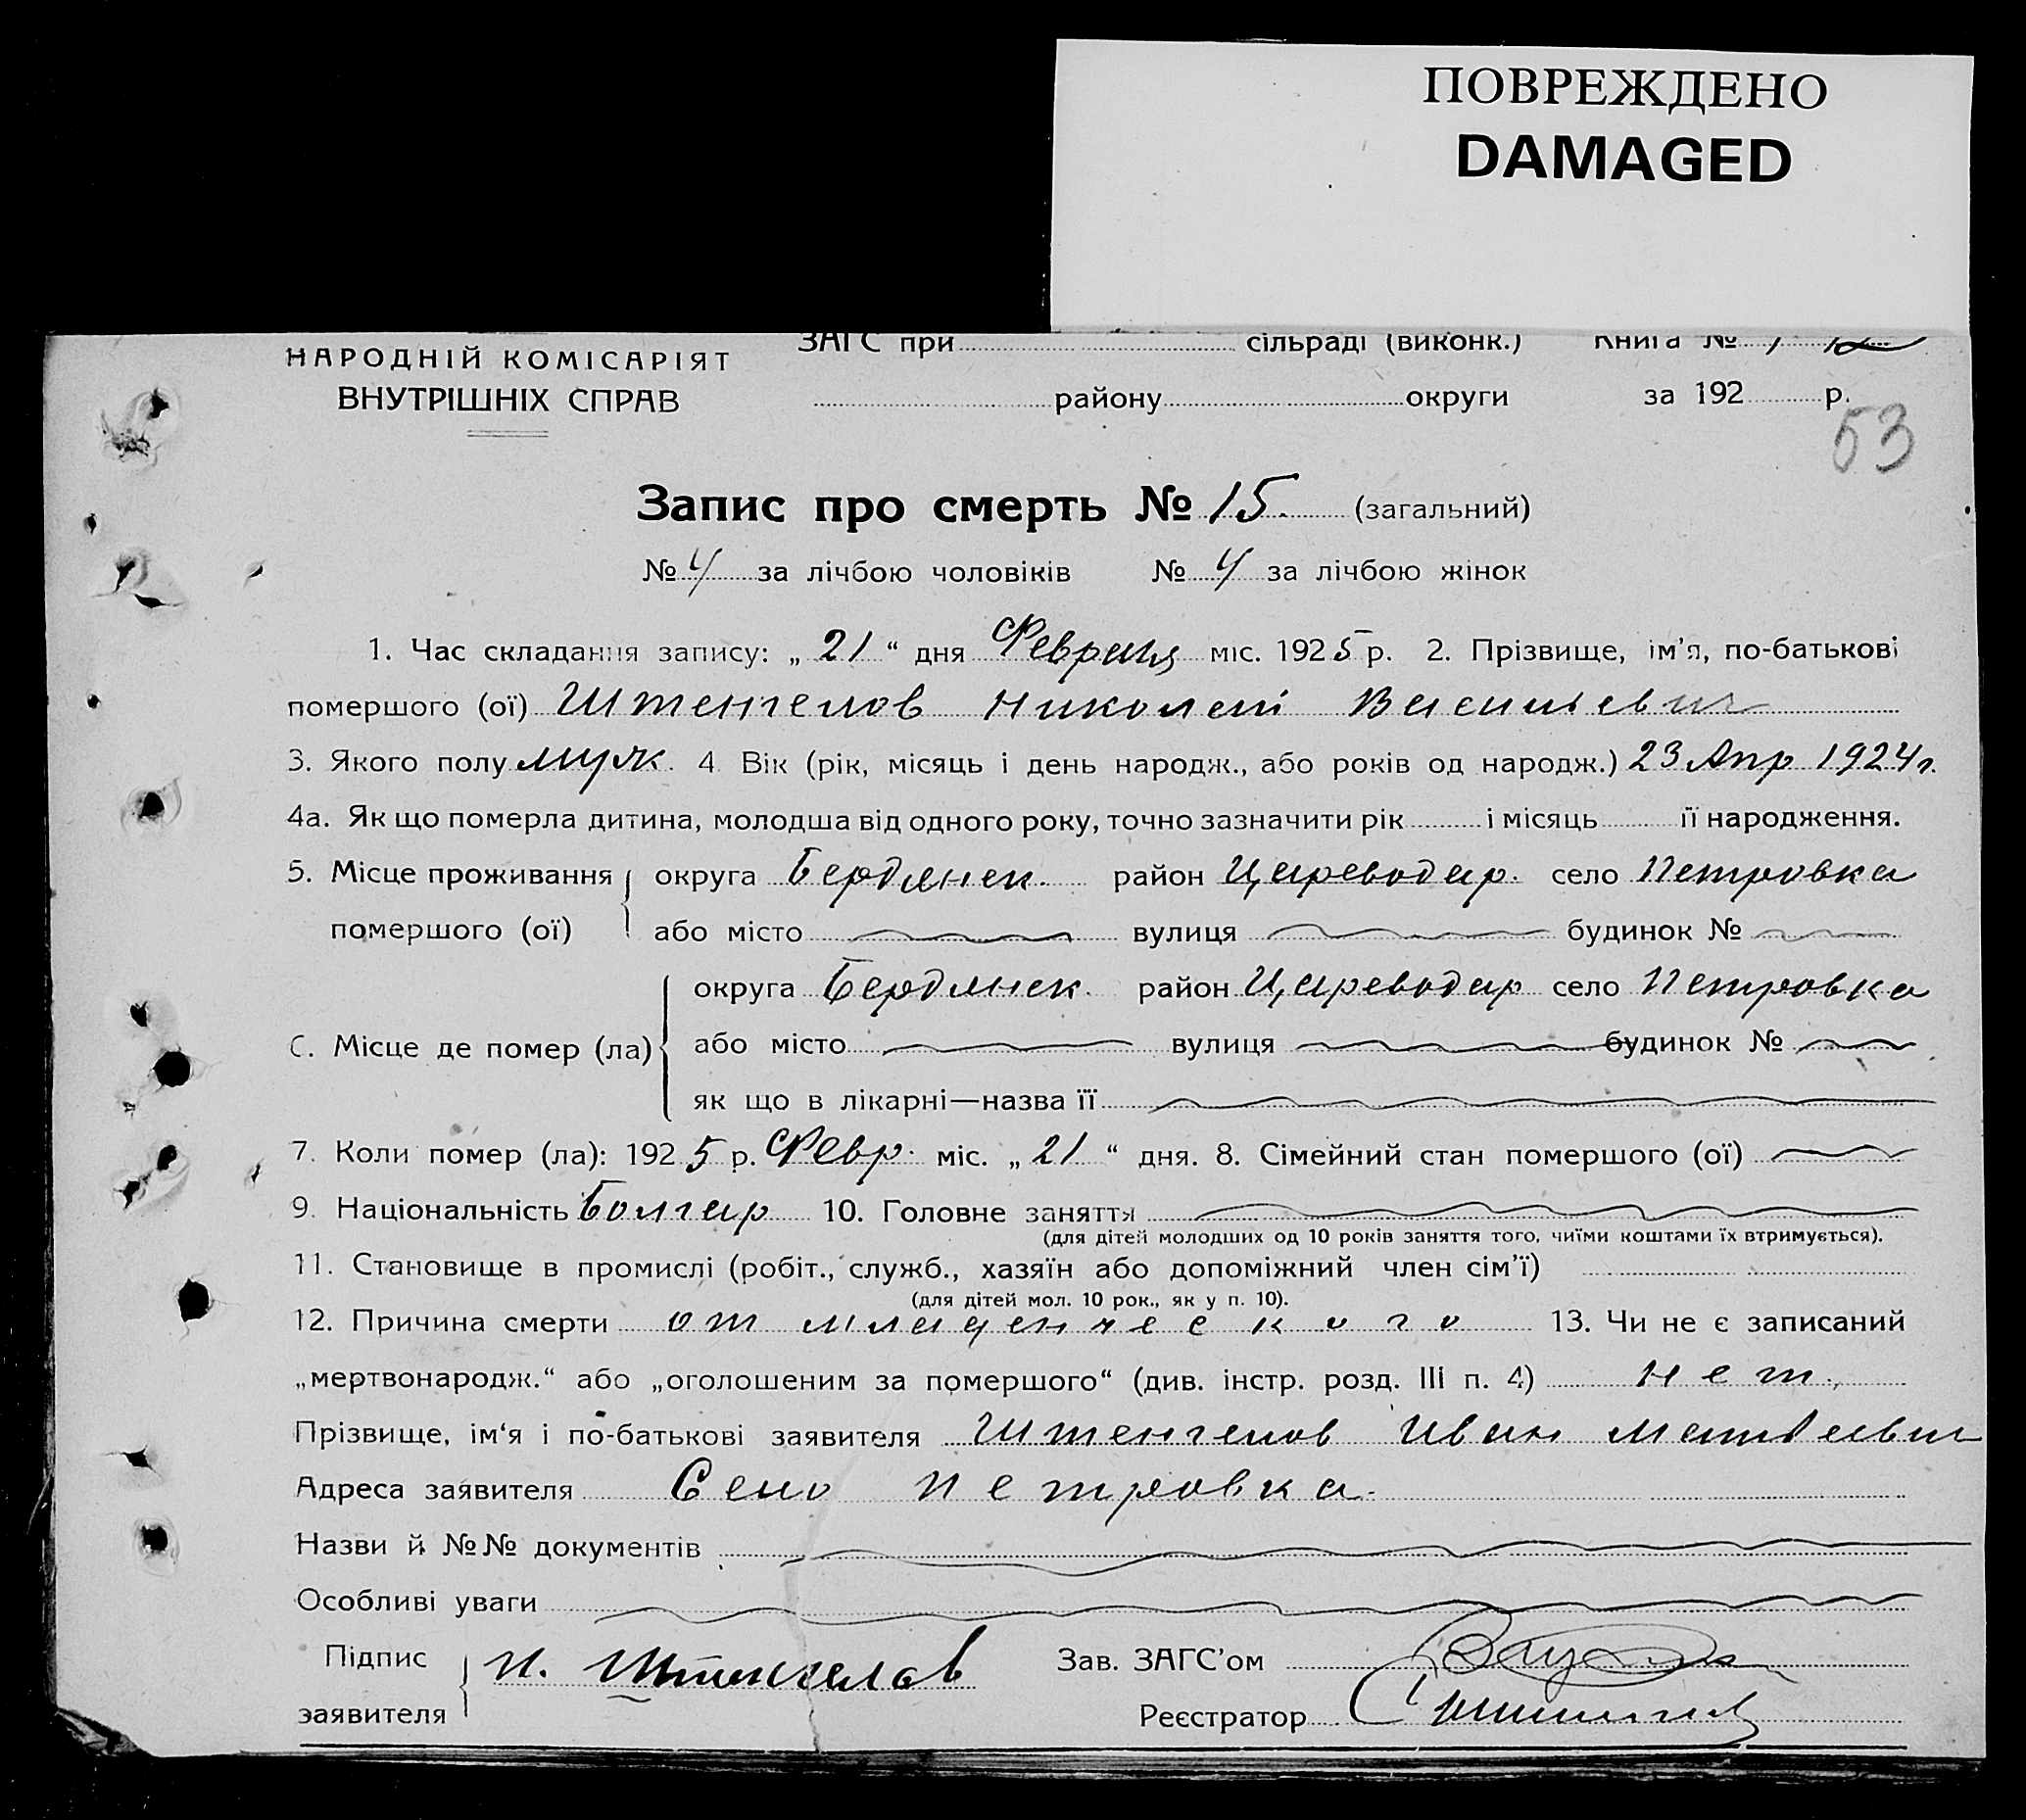 ПОВРЕЖДЕНО
DAMAGED
НАРОДНІЙ КОМІСАРІЯТ
ВНУТРІШНІХ СПРАВ
ЗАГС при сільраді (виконк.) Книга № 1
району округи за 192 р.
53
Запис про смерть № 15. (загальний)
№ 4 за лічбою чоловіків № 4 за лічбою жінок
1. Час складання запису: „ 21 “ дня Февраля міс. 1925 р. 2. Прізвище, ім’я, по-батькові
помершого (ої) Штенгелов Николай Васильевич
3. Якого полу муж. 4 Вік (рік, місяць і день народж., або років од народж.) 23 Апр 1924 г.
4а. Як що померла дитина, молодша від одного року, точно зазначити рік і місяць її народження.
5. Місце проживання округа Бердянск. район Цареводар. село Петровка
помершого (ої) або місто вулиця будинок №
округа Бердянск. район Цареводар село Петровка
6. Місце де помер (ла) або місто вулиця будинок №
як що в лікарні—назва її
7. Коли помер (ла): 1925 р. Февр. міс. „ 21 “ дня. 8. Сімейний стан помершого (ої)
9. Національність Болгар 10. Головне заняття
(для дітей молодших од 10 років заняття того, чиїми коштами їх втримується).
11. Становище в промислі (робіт., служб., хазяїн або допоміжний член сім’ї)
(для дітей мол. 10 рок., як у п. 10).
12. Причина смерти от младенческого 13. Чи не є записаний
„мертвонародж.“ або „оголошеним за помершого“ (див. інстр. розд. III п. 4) нет.
Прізвище, ім‘я і по-батькові заявителя Штенгелов Иван
Адреса заявителя Село Петровка.
Назви й №№ документів
Особливі уваги
Підпис И. Штенгелов Зав. ЗАГС’ом
заявителя Реєстратор